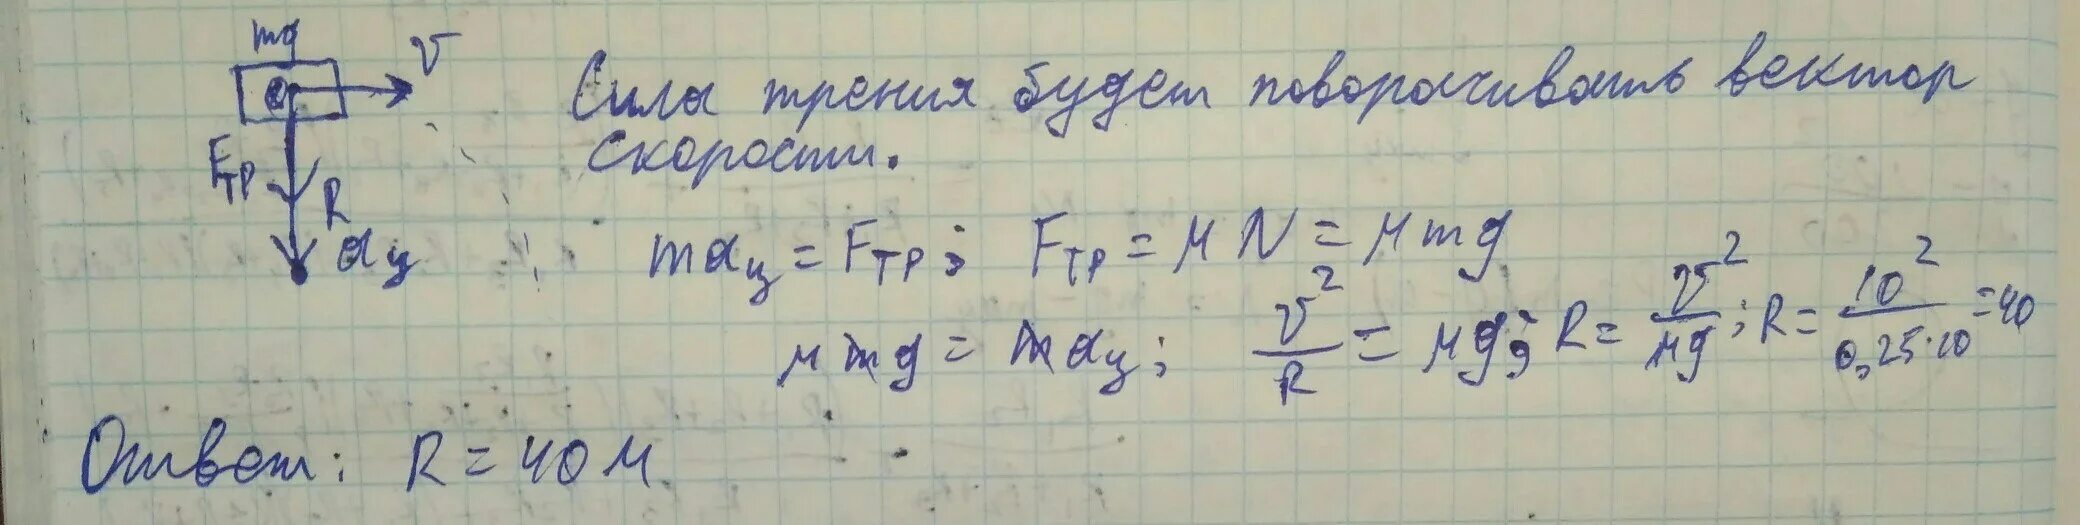 mg
v
Fтр
R
aц
Сила трения будет поворачивать вектор
скорости.
maц = Fтр; Fтр = μN = μmg
μmg = maц; v²/R = μg; R = v²/μg; R = 10²/0,25·10 = 40
Ответ: R = 40 м